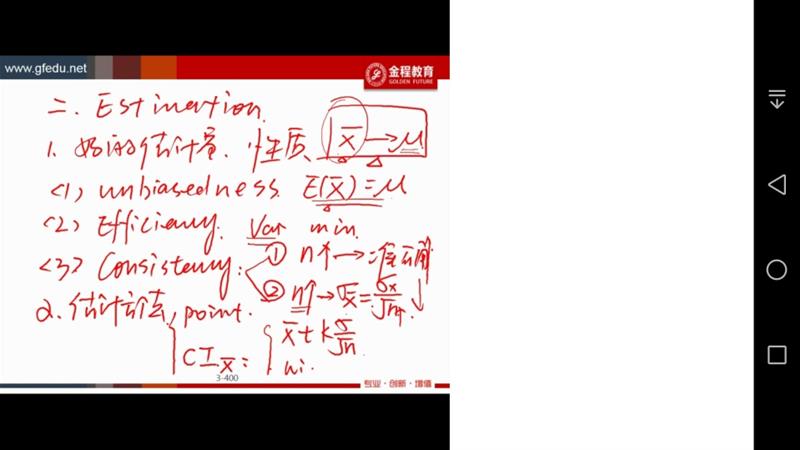 www.gfedu.net
金程教育
GOLDEN FUTURE
二. Estimation.
1. 好的估计量. 性质 x̄ → μ
(1) unbiasedness. E(x̄) = μ
(2) Efficiency. Var min.
(3) Consistency: ① n↑ → 准确↑
② n↑ → σx̄ = σx/√n ↓
2. 估计方法, point.
CI x̄ = { x̄ ± k σ/√n
3-400
专业·创新·增值